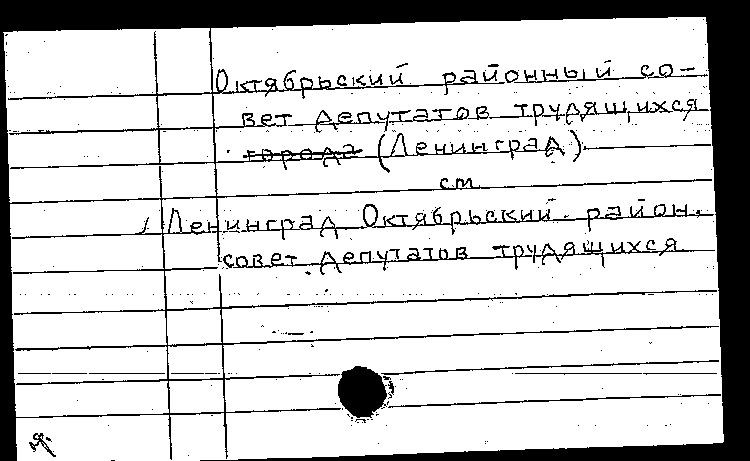 Октябрьский районный со-
вет депутатов трудящихся
города (Ленинград).
см
Ленинград. Октябрьский район.
совет депутатов трудящихся